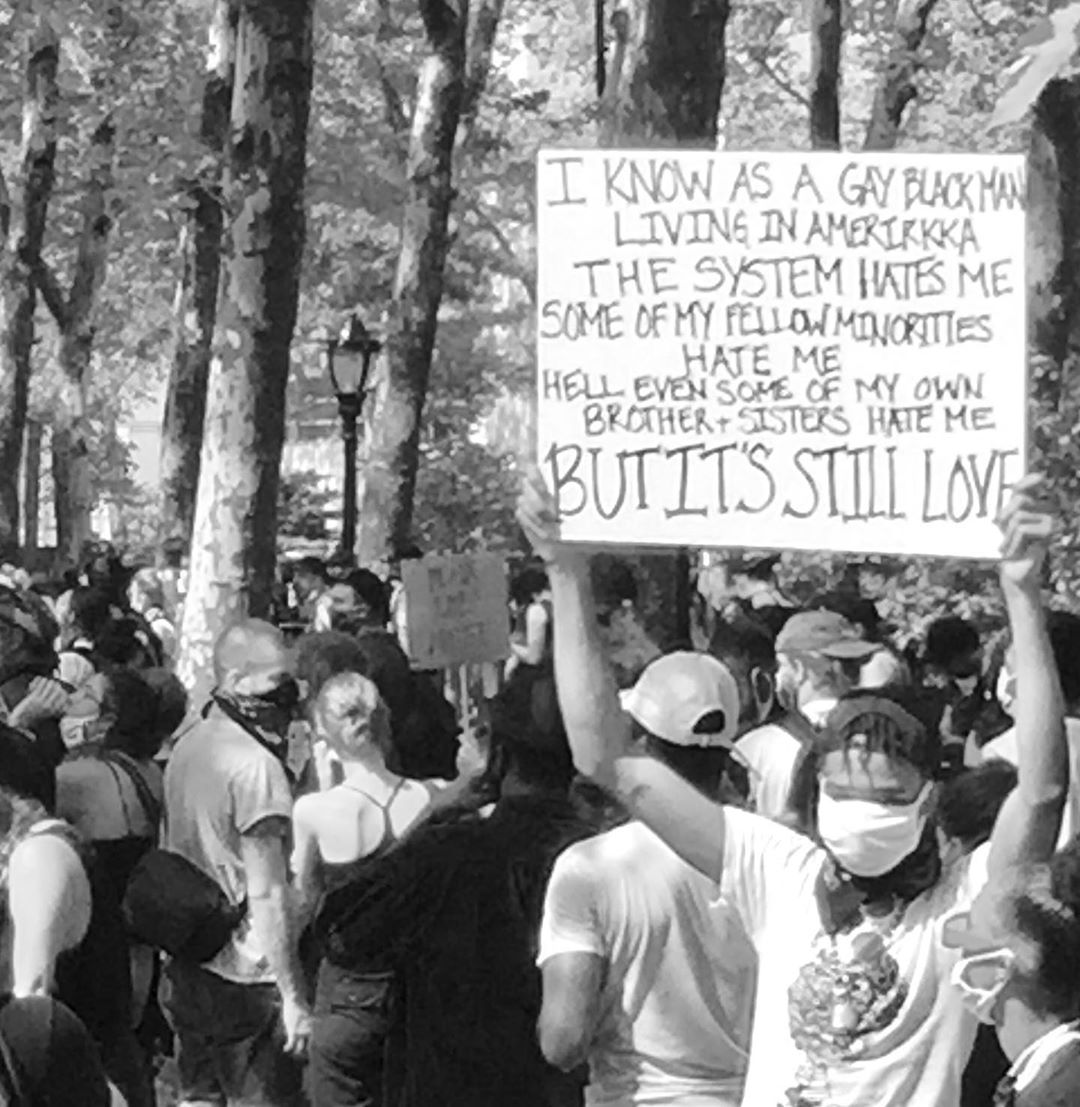 I KNOW AS A GAY BLACK MAN
LIVING IN AMERIRKKKA
THE SYSTEM HATES ME
SOME OF MY FELLOW MINORITIES
HATE ME
HELL EVEN SOME OF MY OWN
BROTHER + SISTERS HATE ME
BUT IT'S STILL LOVE